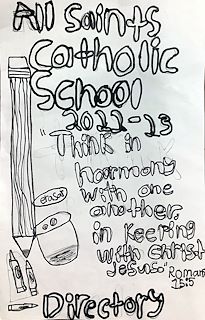 All Saints
Catholic
School
2022-23
"Think in
harmony
with one
another,
in keeping
with Christ
Jesus" Romans
15:5
eraser
Directory